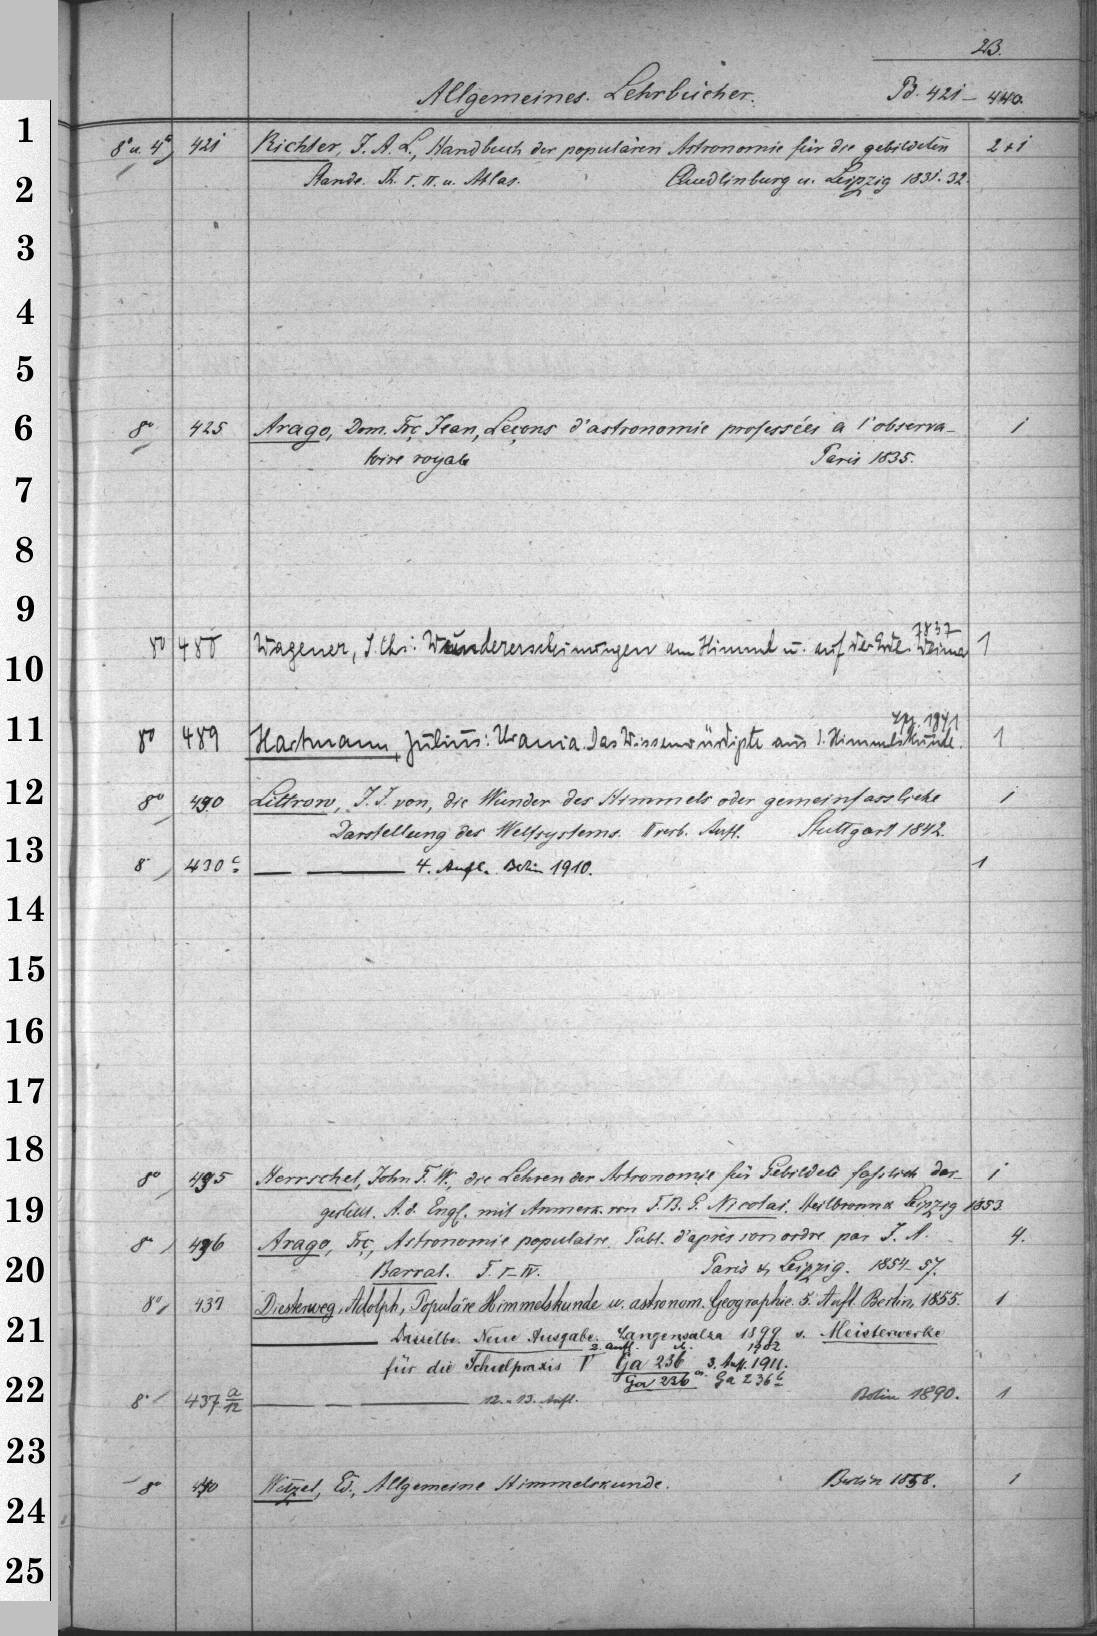 23.
Allgemeines. Lehrbücher. B. 421 – 440.
1
8° u. 4° 421 Richter, J. A. L., Handbuch der populären Astronomie für die gebildeten 2+1
2
Stände. Th. I. II. u. Atlas. Quedlinburg u. Leipzig 1831-32.
3
4
5
6
8° 425 Arago, Dom. Frç Jean, Leçons d'astronomie professées à l'observa- 1
toire royale Paris 1835.
7
8
9
1837
8° 488 Wagener, S. Chr.: Wundererscheinungen am Himmel u. auf der Erde. Weimar 1
10
11
Lpz. 1841
8° 489 Hartmann, Julius: Urania. Das Wissenswürdigste aus d. Himmelskunde. 1
12
8° 490 Littrow, J. J. von, die Wunder des Himmels oder gemeinfassliche 1
Darstellung des Weltsystems. II verb. Aufl. Stuttgart 1842.
13
8° 430 c — — 4. Aufl. Berlin 1910. 1
14
15
16
17
18
8° 495 Herrschel, John F. W., die Lehren der Astronomie für Gebildete fasslich dar- 1
19
gestellt. A. d. Engl. mit Anmerk. von F. B. G. Nicolai. Heilbronn & Leipzig 1853
8° 496 Arago, Frç, Astronomie populaire. Publ. d'après son ordre par J. A. 4.
20
Barral. T. I-IV. Paris & Leipzig. 1854-57.
8° 437 Diesterweg, Adolph, Populäre Himmelskunde u. astronom. Geographie. 5. Aufl. Berlin, 1855. 1
21
— Dasselbe. Neue Ausgabe. Langensalza 1899 s. Meisterwerke
2. Aufl. 1902
für die Schulpraxis V Ga 236 3. Aufl. 1911.
22
Ga 236 a Ga 236 b
8° 437 a/12 — — — 12. u. 13. Aufl. Berlin 1890. 1
23
8° 440 Wetzel, Ed., Allgemeine Himmelskunde. Berlin 1858. 1
24
25